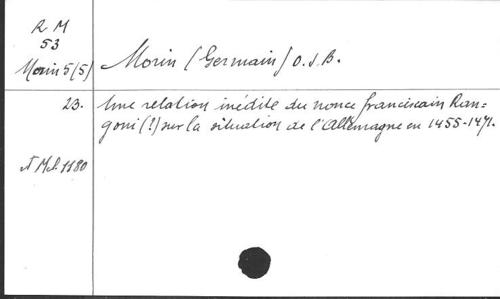 R M
53
Morin 5(5)
Morin (Germain) O.S.B.
23. Une relation inédite du nonce franciscain Ran=
goni (!) sur la situation de l'Allemagne en 1455-1471.
Mél. 1180